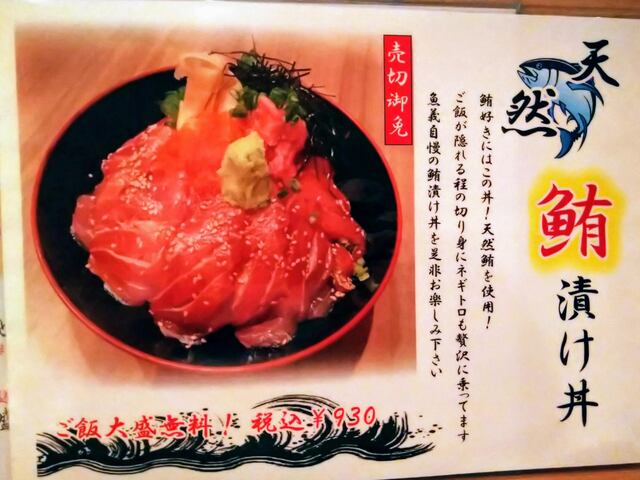 天然
鮪漬け丼
鮪好きにはこの丼！天然鮪を使用！
ご飯が隠れる程の切り身にネギトロも贅沢に乗ってます
魚義自慢の鮪漬け丼を是非お楽しみ下さい
売切御免
ご飯大盛無料！ 税込￥930